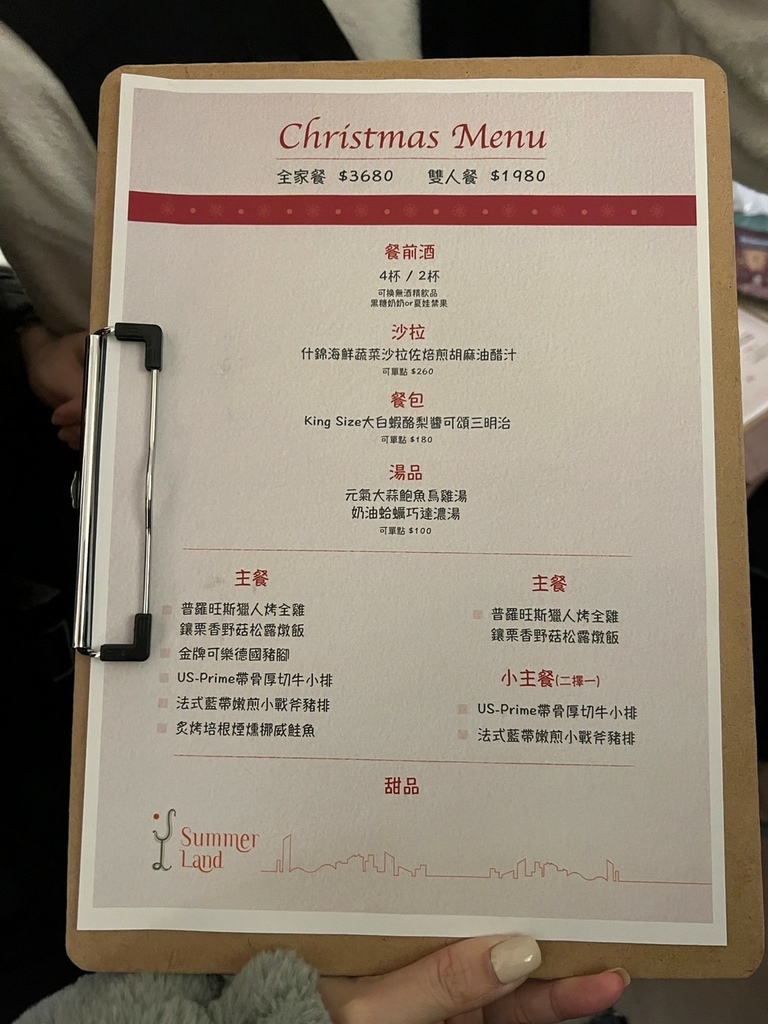 Christmas Menu
全家餐 $3680 雙人餐 $1980
餐前酒
4杯 / 2杯
可換無酒精飲品
黑糖奶奶or夏娃禁果
沙拉
什錦海鮮蔬菜沙拉佐焙煎胡麻油醋汁
可單點 $260
餐包
King Size大白蝦酪梨醬可頌三明治
可單點 $180
湯品
元氣大蒜鮑魚烏雞湯
奶油蛤蠣巧達濃湯
可單點 $100
主餐
普羅旺斯獵人烤全雞
鑲栗香野菇松露燉飯
金牌可樂德國豬腳
US-Prime帶骨厚切牛小排
法式藍帶嫩煎小戰斧豬排
炙烤培根煙燻挪威鮭魚
主餐
普羅旺斯獵人烤全雞
鑲栗香野菇松露燉飯
小主餐(二擇一)
US-Prime帶骨厚切牛小排
法式藍帶嫩煎小戰斧豬排
甜品
Summer
Land